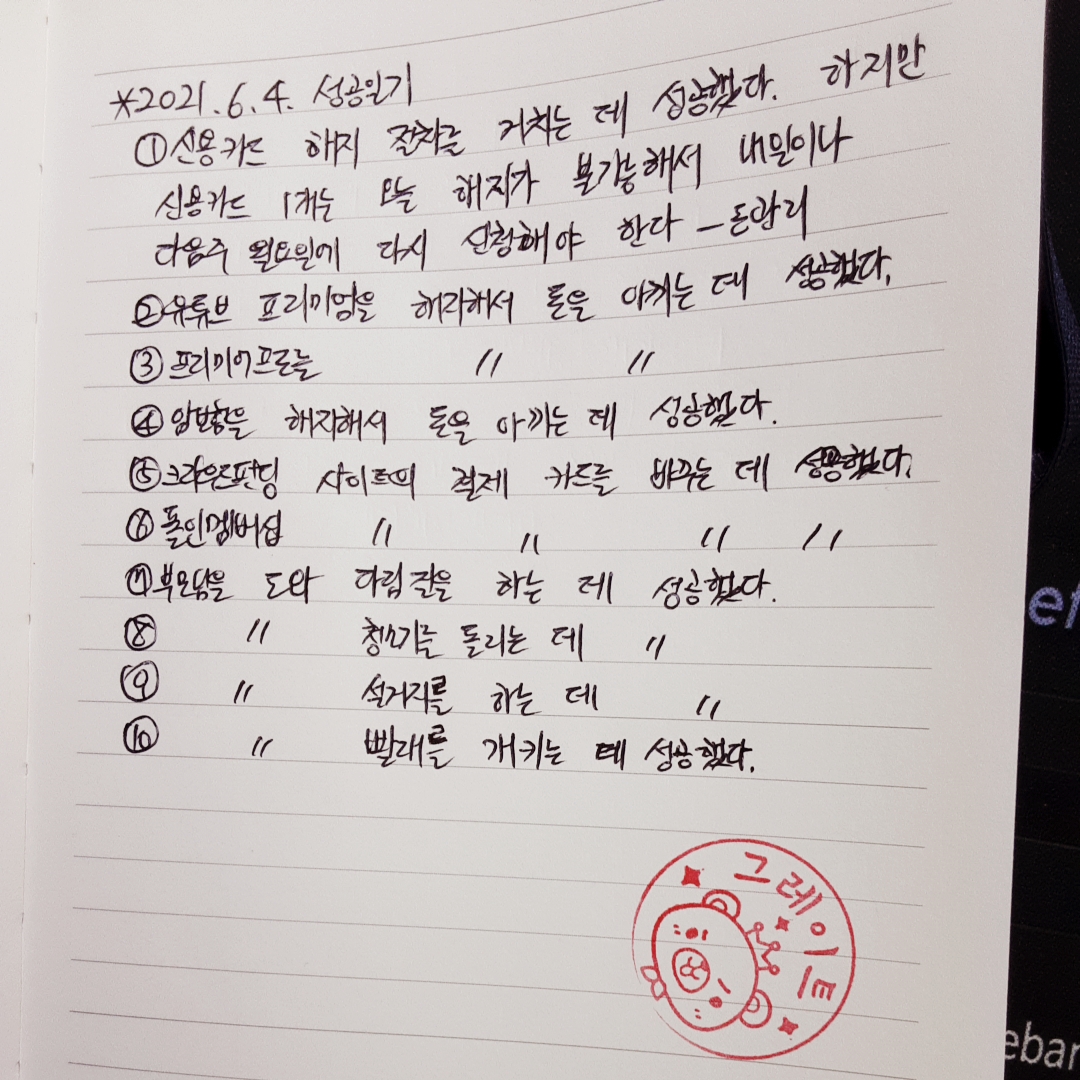 *2021.6.4. 성공일기
①신용카드 해지 절차를 거치는 데 성공했다. 하지만
신용카드 1개는 오늘 해지가 불가능해서 내일이나
다음주 월요일에 다시 신청해야 한다 - 돈관리
②유튜브 프리미엄을 해지해서 돈을 아끼는 데 성공했다.
③프리미어프로를 〃 〃
④암보험을 해지해서 돈을 아끼는 데 성공했다.
⑤크라우드펀딩 사이트의 결제 카드를 바꾸는 데 성공했다.
⑥폴인멤버십 〃 〃 〃 〃
⑦부모님을 도와 다림질을 하는 데 성공했다.
⑧ 〃 청소기를 돌리는 데 〃
⑨ 〃 설거지를 하는 데 〃
⑩ 〃 빨래를 개키는 데 성공했다.
그레이트
ebar